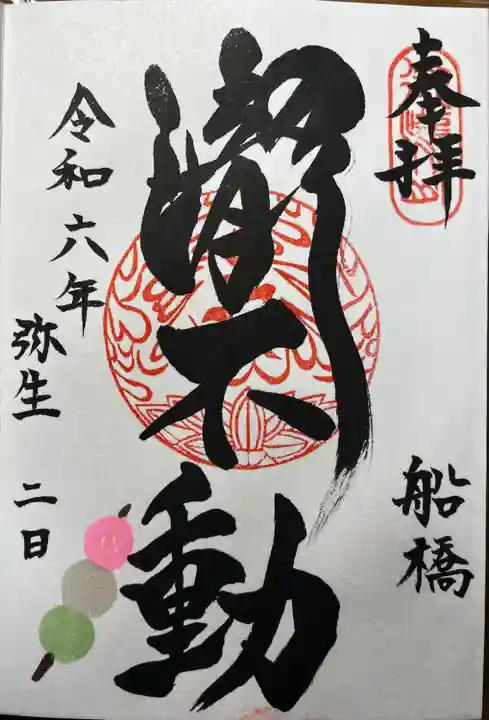 奉拝
船橋
瀧不動
令和六年 弥生 二日